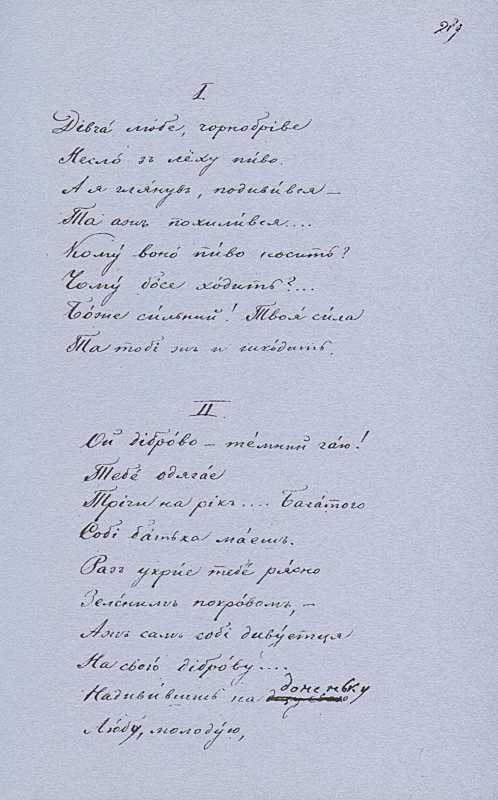 219
I.
Дівча́ лю́бе, чорнобрі́ве
Несло́ зъ лёху пи́во.
А я гля́нувъ, подиви́вся —
Та ажъ похили́вся....
Кому́ воно́ пи́во носить?
Чому́ бо́се хо́дить?...
Бо́же си́льний! Твоя́ си́ла
Та тобі жъ и шко́дить.
II.
Ой дібро́во — те́мний га́ю!
Тебе́ одяга́е
Трі́чи на рікъ.... Бага́того
Собі ба́тька ма́ешъ.
Разъ укри́е тебе́ ря́сно
Зеле́нимъ покро́вомъ, —
Ажъ самъ собі диву́етця
На свою́ дібро́ву....
Надиви́вшись на доненьку
Лю́бу, молоду́ю,